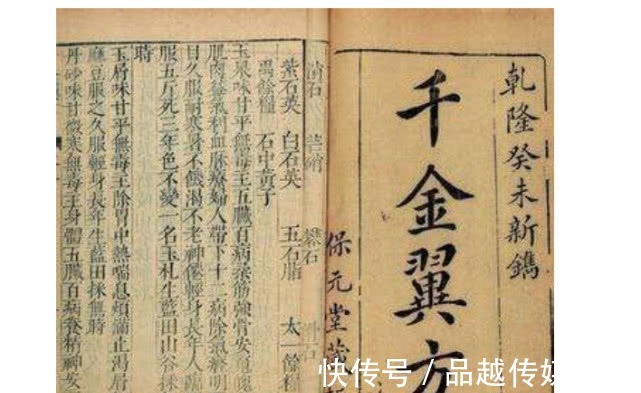 乾隆癸未新鐫
千金翼方
保元堂
消石 芒硝 礬石 滑石
紫石英 白石英 五石脂 太一餘糧
禹餘糧 石中黃子
玉泉味甘平無毒主五臟百病柔筋強骨安
肌肉益氣利血脈療婦人帶下十二病除氣癃明
目久服耐寒暑不飢渴不老神僊輕身長年人臨
服五斤死三年色不變一名玉札生藍田山谷採
時
玉屑味甘平無毒主除胃中熱喘息煩滿止渴屑
麻豆服之久服輕身長年生藍田採無時
丹砂味甘微寒無毒主身體五臟百病養精神安
快传号 / 品越传媒